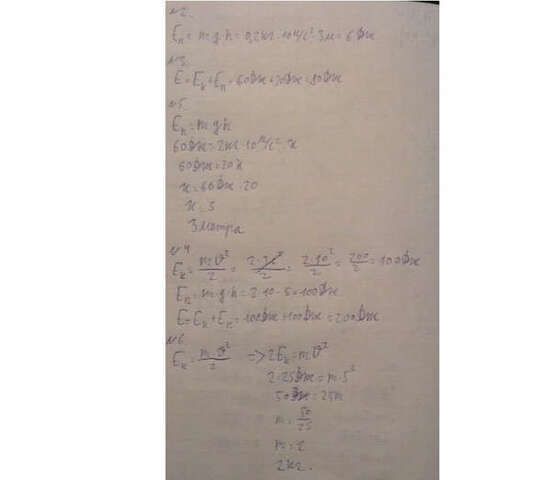 №2.
Eп = m·g·h = 0,2кг·10м/с²·3м = 6Дж
№3.
E = Eк + Eп =
№5.
Eп = m·g·h
60Дж = 2кг·10м/с²·x
60Дж = 20x
x = 60Дж : 20
x = 3
3 метра
№4
Eк = m·v²/2 = = 2·10²/2 = 200/2 = 100Дж
Eп = m·g·h = 2·10·5 = 100Дж
E = Eк + Eп = 100Дж + 100Дж = 200Дж
№6
Eк = m·v²/2 => 2Eк = m·v²
2·25Дж = m·5²
50Дж = 25m
m = 50/25
m = 2
2кг.